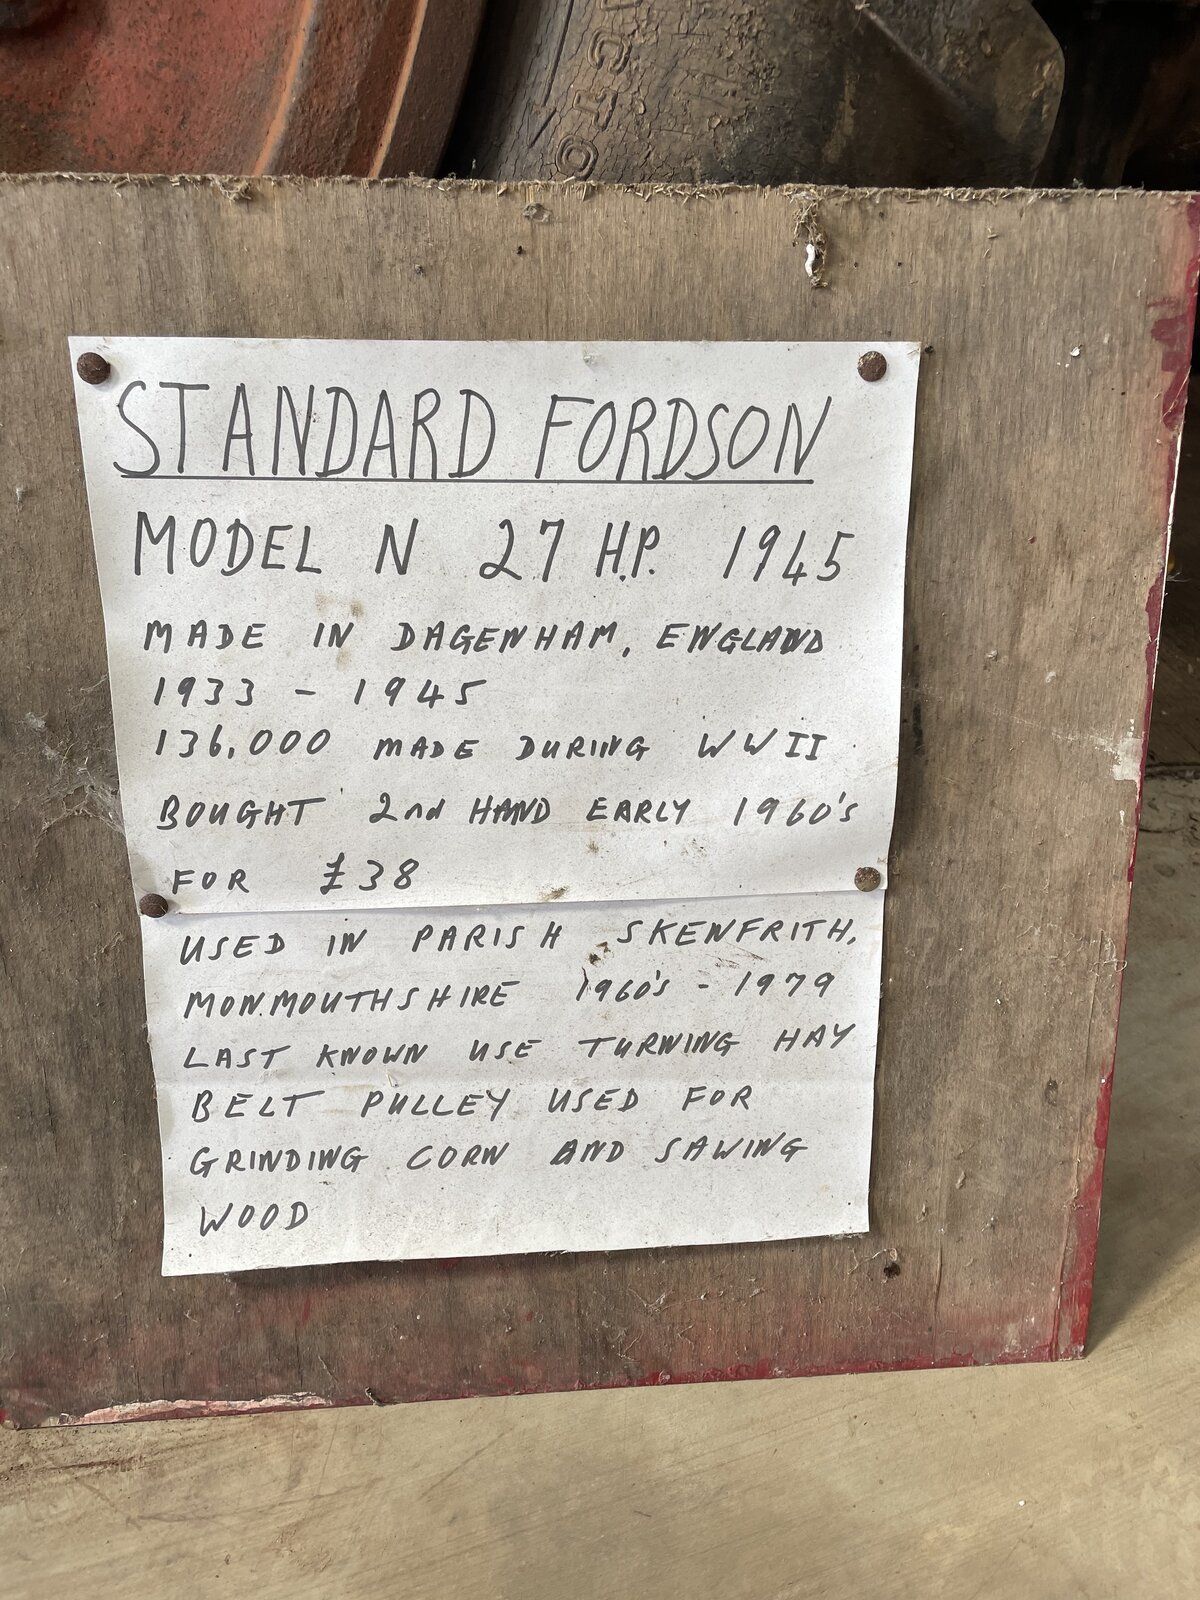 STANDARD FORDSON
MODEL N 27 H.P. 1945
MADE IN DAGENHAM, ENGLAND
1933 - 1945
136,000 MADE DURING WWII
BOUGHT 2nd HAND EARLY 1960's
FOR £38
USED IN PARISH SKENFRITH.
MONMOUTHSHIRE 1960's - 1979
LAST KNOWN USE TURNING HAY
BELT PULLEY USED FOR
GRINDING CORN AND SAWING
WOOD